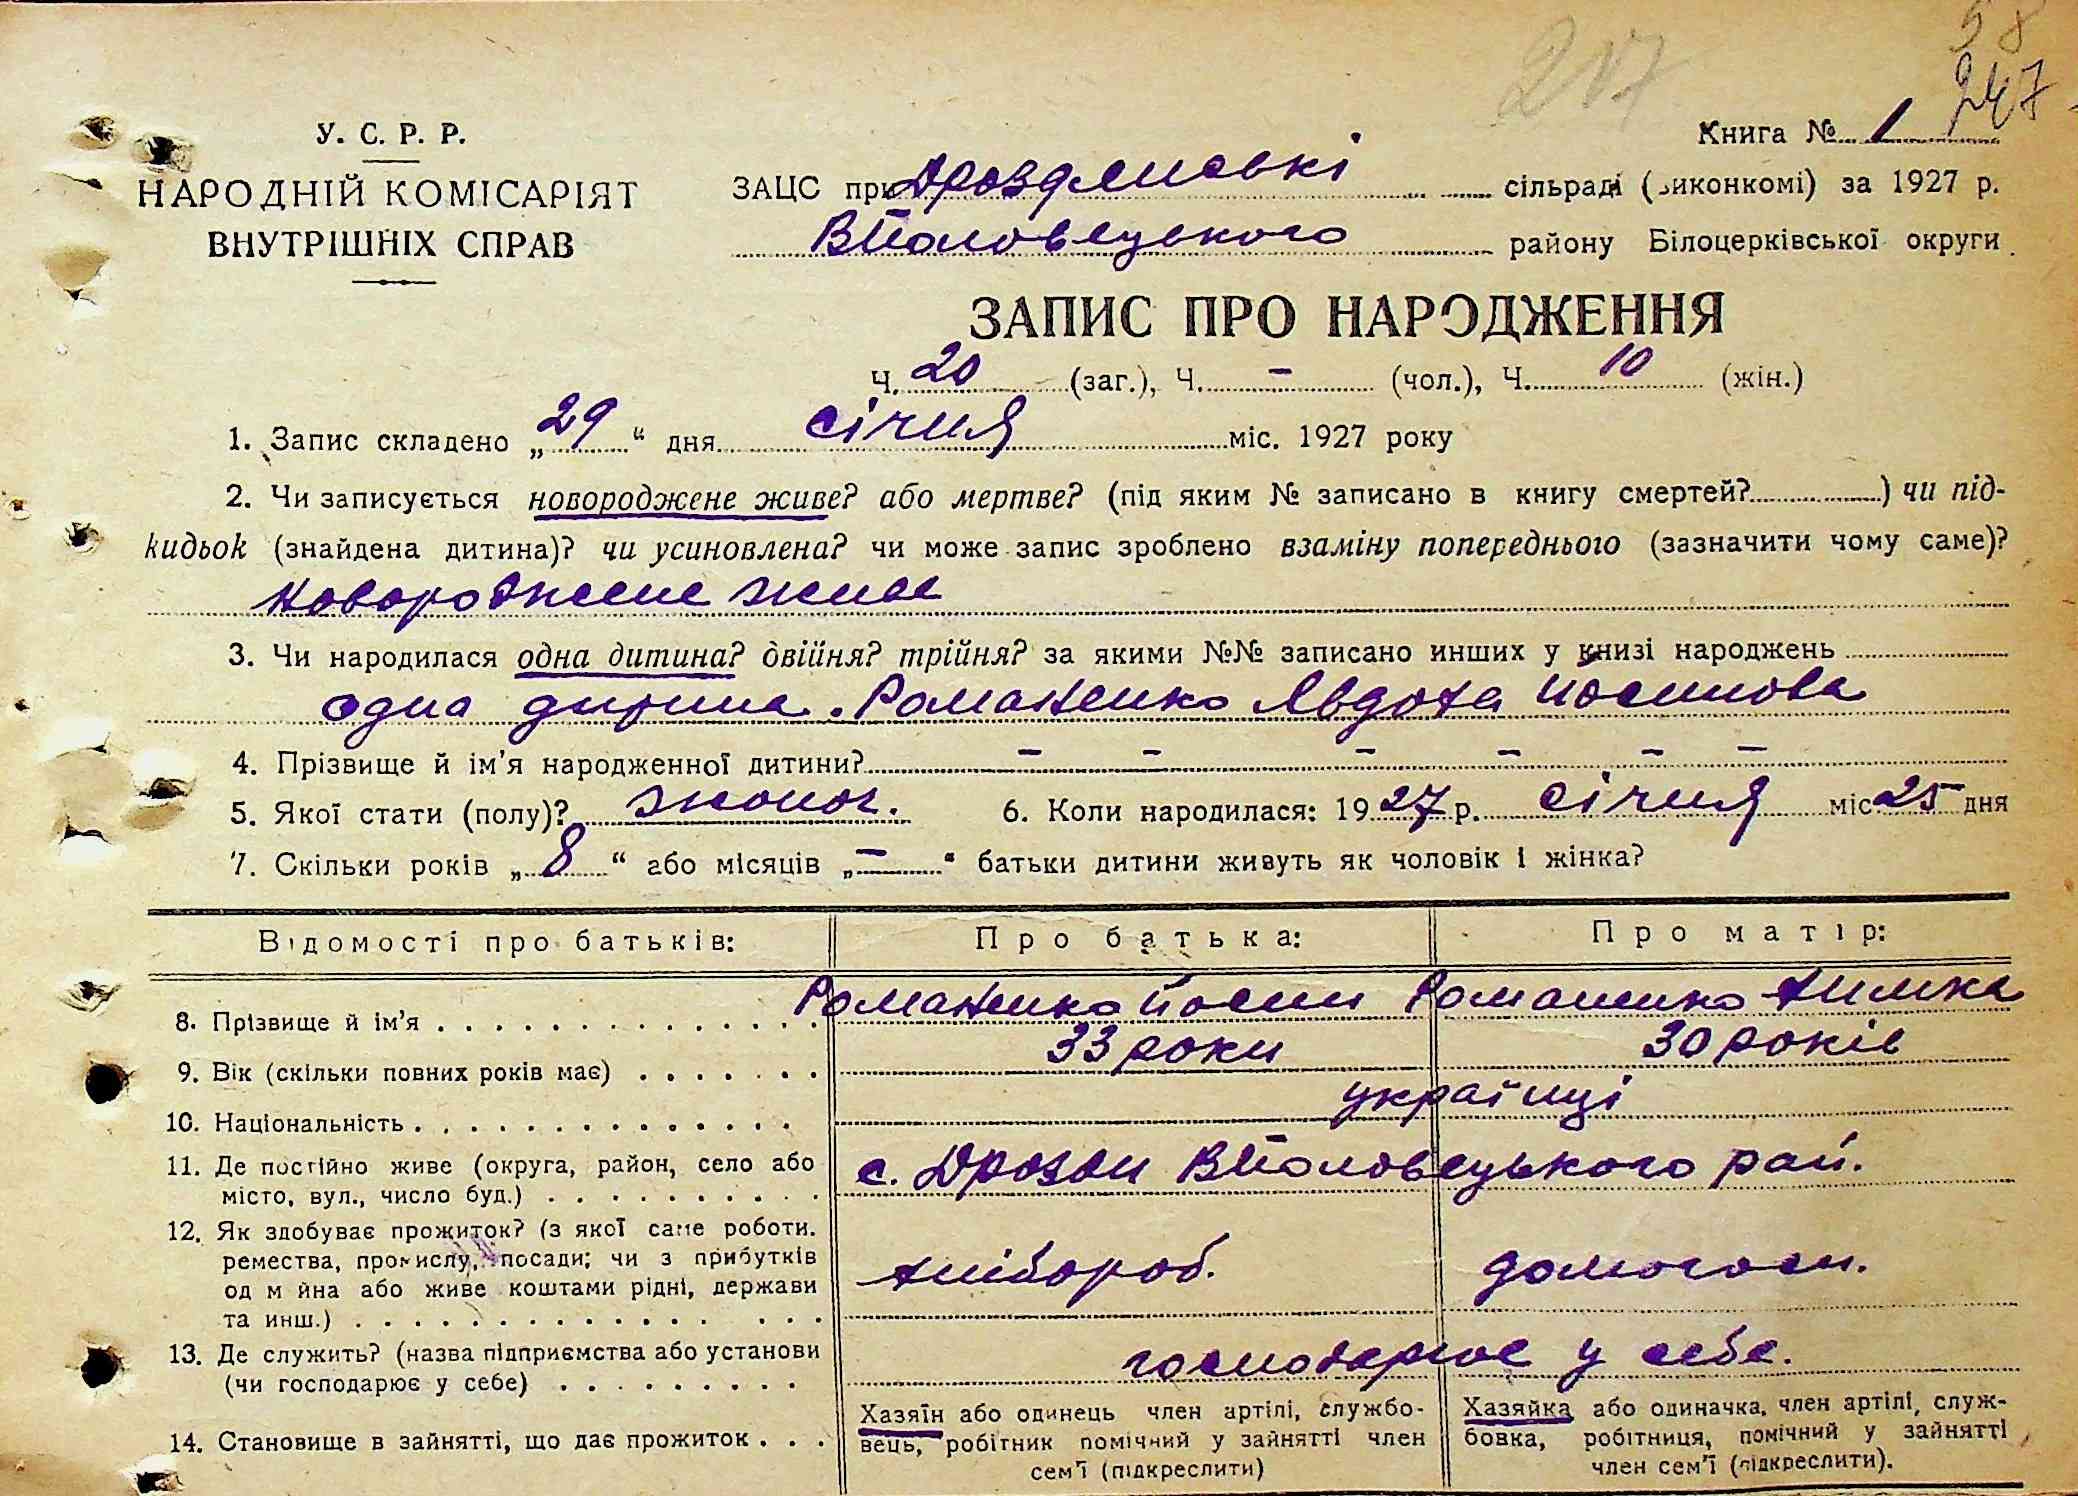 58
217
247
У. С. Р. Р.
Книга № 1
НАРОДНІЙ КОМІСАРІЯТ
ВНУТРІШНІХ СПРАВ
ЗАЦС при Дроздянські сільраді (виконкомі) за 1927 р.
ВПоловецького району Білоцерківської округи
ЗАПИС ПРО НАРОДЖЕННЯ
Ч. 20 (заг.), Ч. - (чол.), Ч. 10 (жін.)
1. Запис складено „29“ дня січня міс. 1927 року
2. Чи записується новороджене живе? або мертве? (під яким № записано в книгу смертей?..........) чи під-
кидьок (знайдена дитина)? чи усиновлена? чи може запис зроблено взаміну попереднього (зазначити чому саме)?
новороджене живе
3. Чи народилася одна дитина? двійня? трійня? за якими №№ записано инших у книзі народжень
одна дитина. Романенко Явдоха Йосипова
4. Прізвище й ім’я народженної дитини? - - - - - -
5. Якої стати (полу)? жіноч. 6. Коли народилася: 1927 р. січня міс 25 дня
7. Скільки років „8“ або місяців „-“ батьки дитини живуть як чоловік і жінка?
Відомості про батьків: Про батька: Про матір:
8. Прізвище й ім’я . . . Романенко Йосип Романенко
9. Вік (скільки повних років має) . . . 33 роки 30 років
10. Національність . . . україці
11. Де постійно живе (округа, район, село або
місто, вул., число буд.) . . . с. Дрозди ВПоловецького рай.
12. Як здобуває прожиток? (з якої саме роботи.
ремества, промислу, посади; чи з прибутків
од м йна або живе коштами рідні, держави
та инш.) . . . хлібороб. домогосп.
13. Де служить? (назва підприємства або установи
(чи господарює у себе) . . . господарює у себе.
14. Становище в зайнятті, що дає прожиток . . .
Хазяїн або одинець член артілі, службо-
вець, робітник помічний у зайнятті член
сем’ї (підкреслити)
Хазяйка або одиначка, член артілі, служ-
бовка, робітниця, помічний у зайнятті
член сем’ї (підкреслити).